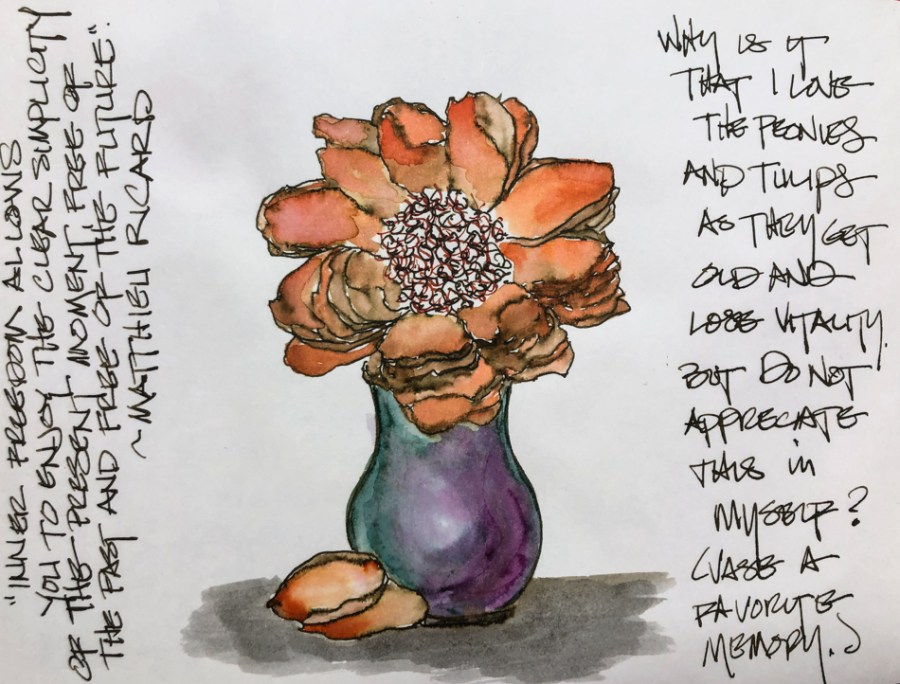 "INNER FREEDOM ALLOWS
YOU TO ENJOY THE CLEAR SIMPLICITY
OF THE PRESENT MOMENT FREE OF
THE PAST AND FREE OF THE FUTURE."
~MATTHIEU RICARD
WHY IS IT
THAT I LOVE
THE PEONIES
AND TULIPS
AS THEY GET
OLD AND
LOSE VITALITY
BUT DO NOT
APPRECIATE
THIS in
MYSELF?
(VASE A
FAVORITE
MEMORY.)